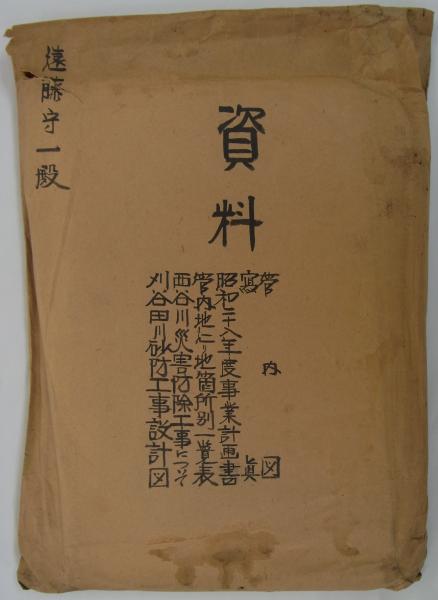 資料
管内図
寫眞
昭和二十八年度事業計画書
管内地にり地箇所別一覧表
西谷川災害防除工事について
刈谷田川砂防工事設計図
遠藤守一殿